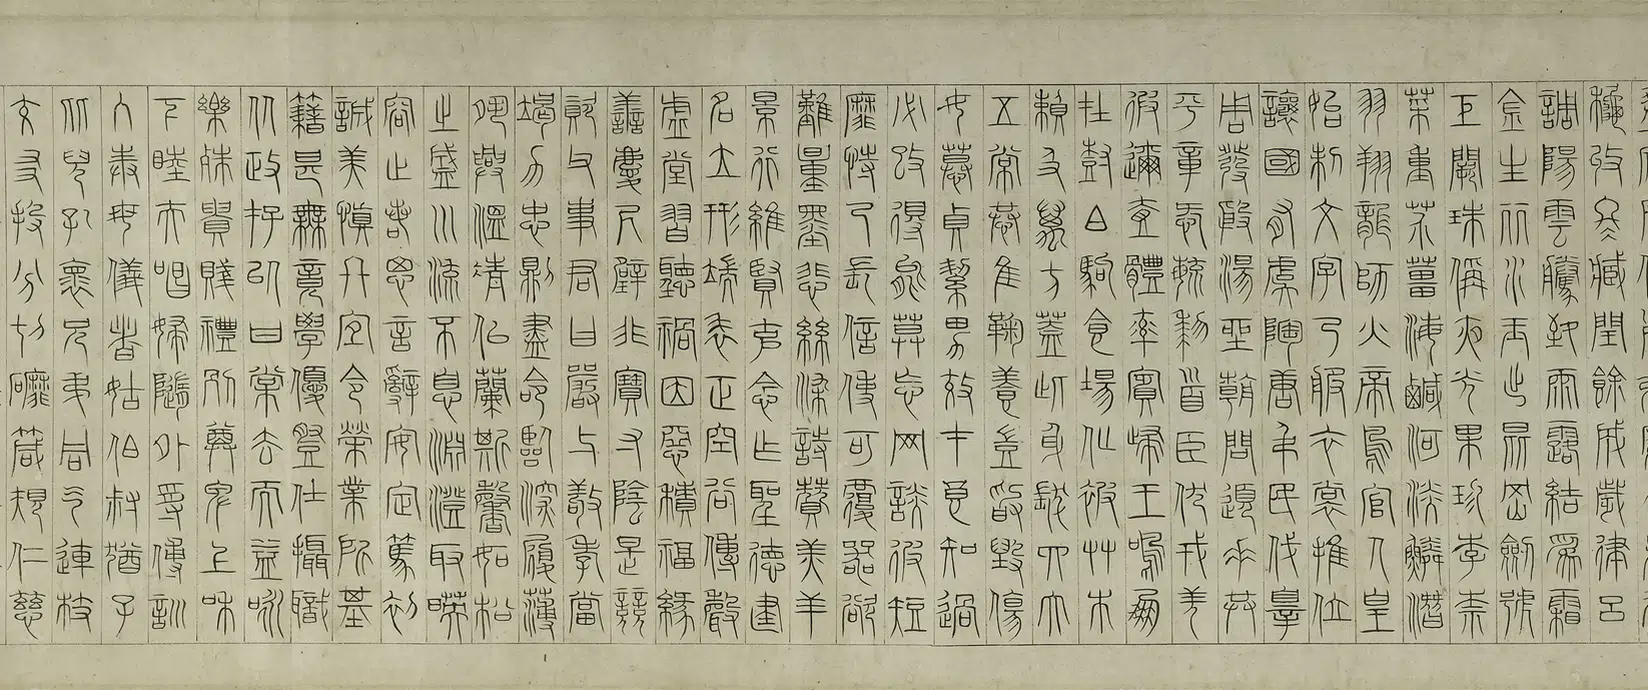 秋收冬藏閏餘成歲律呂
調陽雲騰致雨露結為霜
金生麗水玉出崑岡劍號
巨闕珠稱夜光果珍李柰
菜重芥薑海鹹河淡鱗潛
羽翔龍師火帝鳥官人皇
始制文字乃服衣裳推位
讓國有虞陶唐弔民伐罪
周發殷湯坐朝問道垂拱
平章愛育黎首臣伏戎羌
遐邇壹體率賓歸王鳴鳳
在樹白駒食場化被草木
賴及萬方蓋此身髮四大
五常恭惟鞠養豈敢毀傷
女慕貞絜男效才良知過
必改得能莫忘罔談彼短
靡恃己長信使可覆器欲
難量墨悲絲染詩讚羔羊
景行維賢克念作聖德建
名立形端表正空谷傳聲
虛堂習聽禍因惡積福緣
善慶尺璧非寶寸陰是競
資父事君曰嚴與敬孝當
竭力忠則盡命臨深履薄
夙興溫凊似蘭斯馨如松
之盛川流不息淵澄取暎
容止若思言辭安定篤初
誠美慎終宜令榮業所基
籍甚無竟學優登仕攝職
從政存以甘棠去而益詠
樂殊貴賤禮別尊卑上和
下睦夫唱婦隨外受傅訓
入奉母儀諸姑伯叔猶子
比兒孔懷兄弟同氣連枝
交友投分切磨箴規仁慈